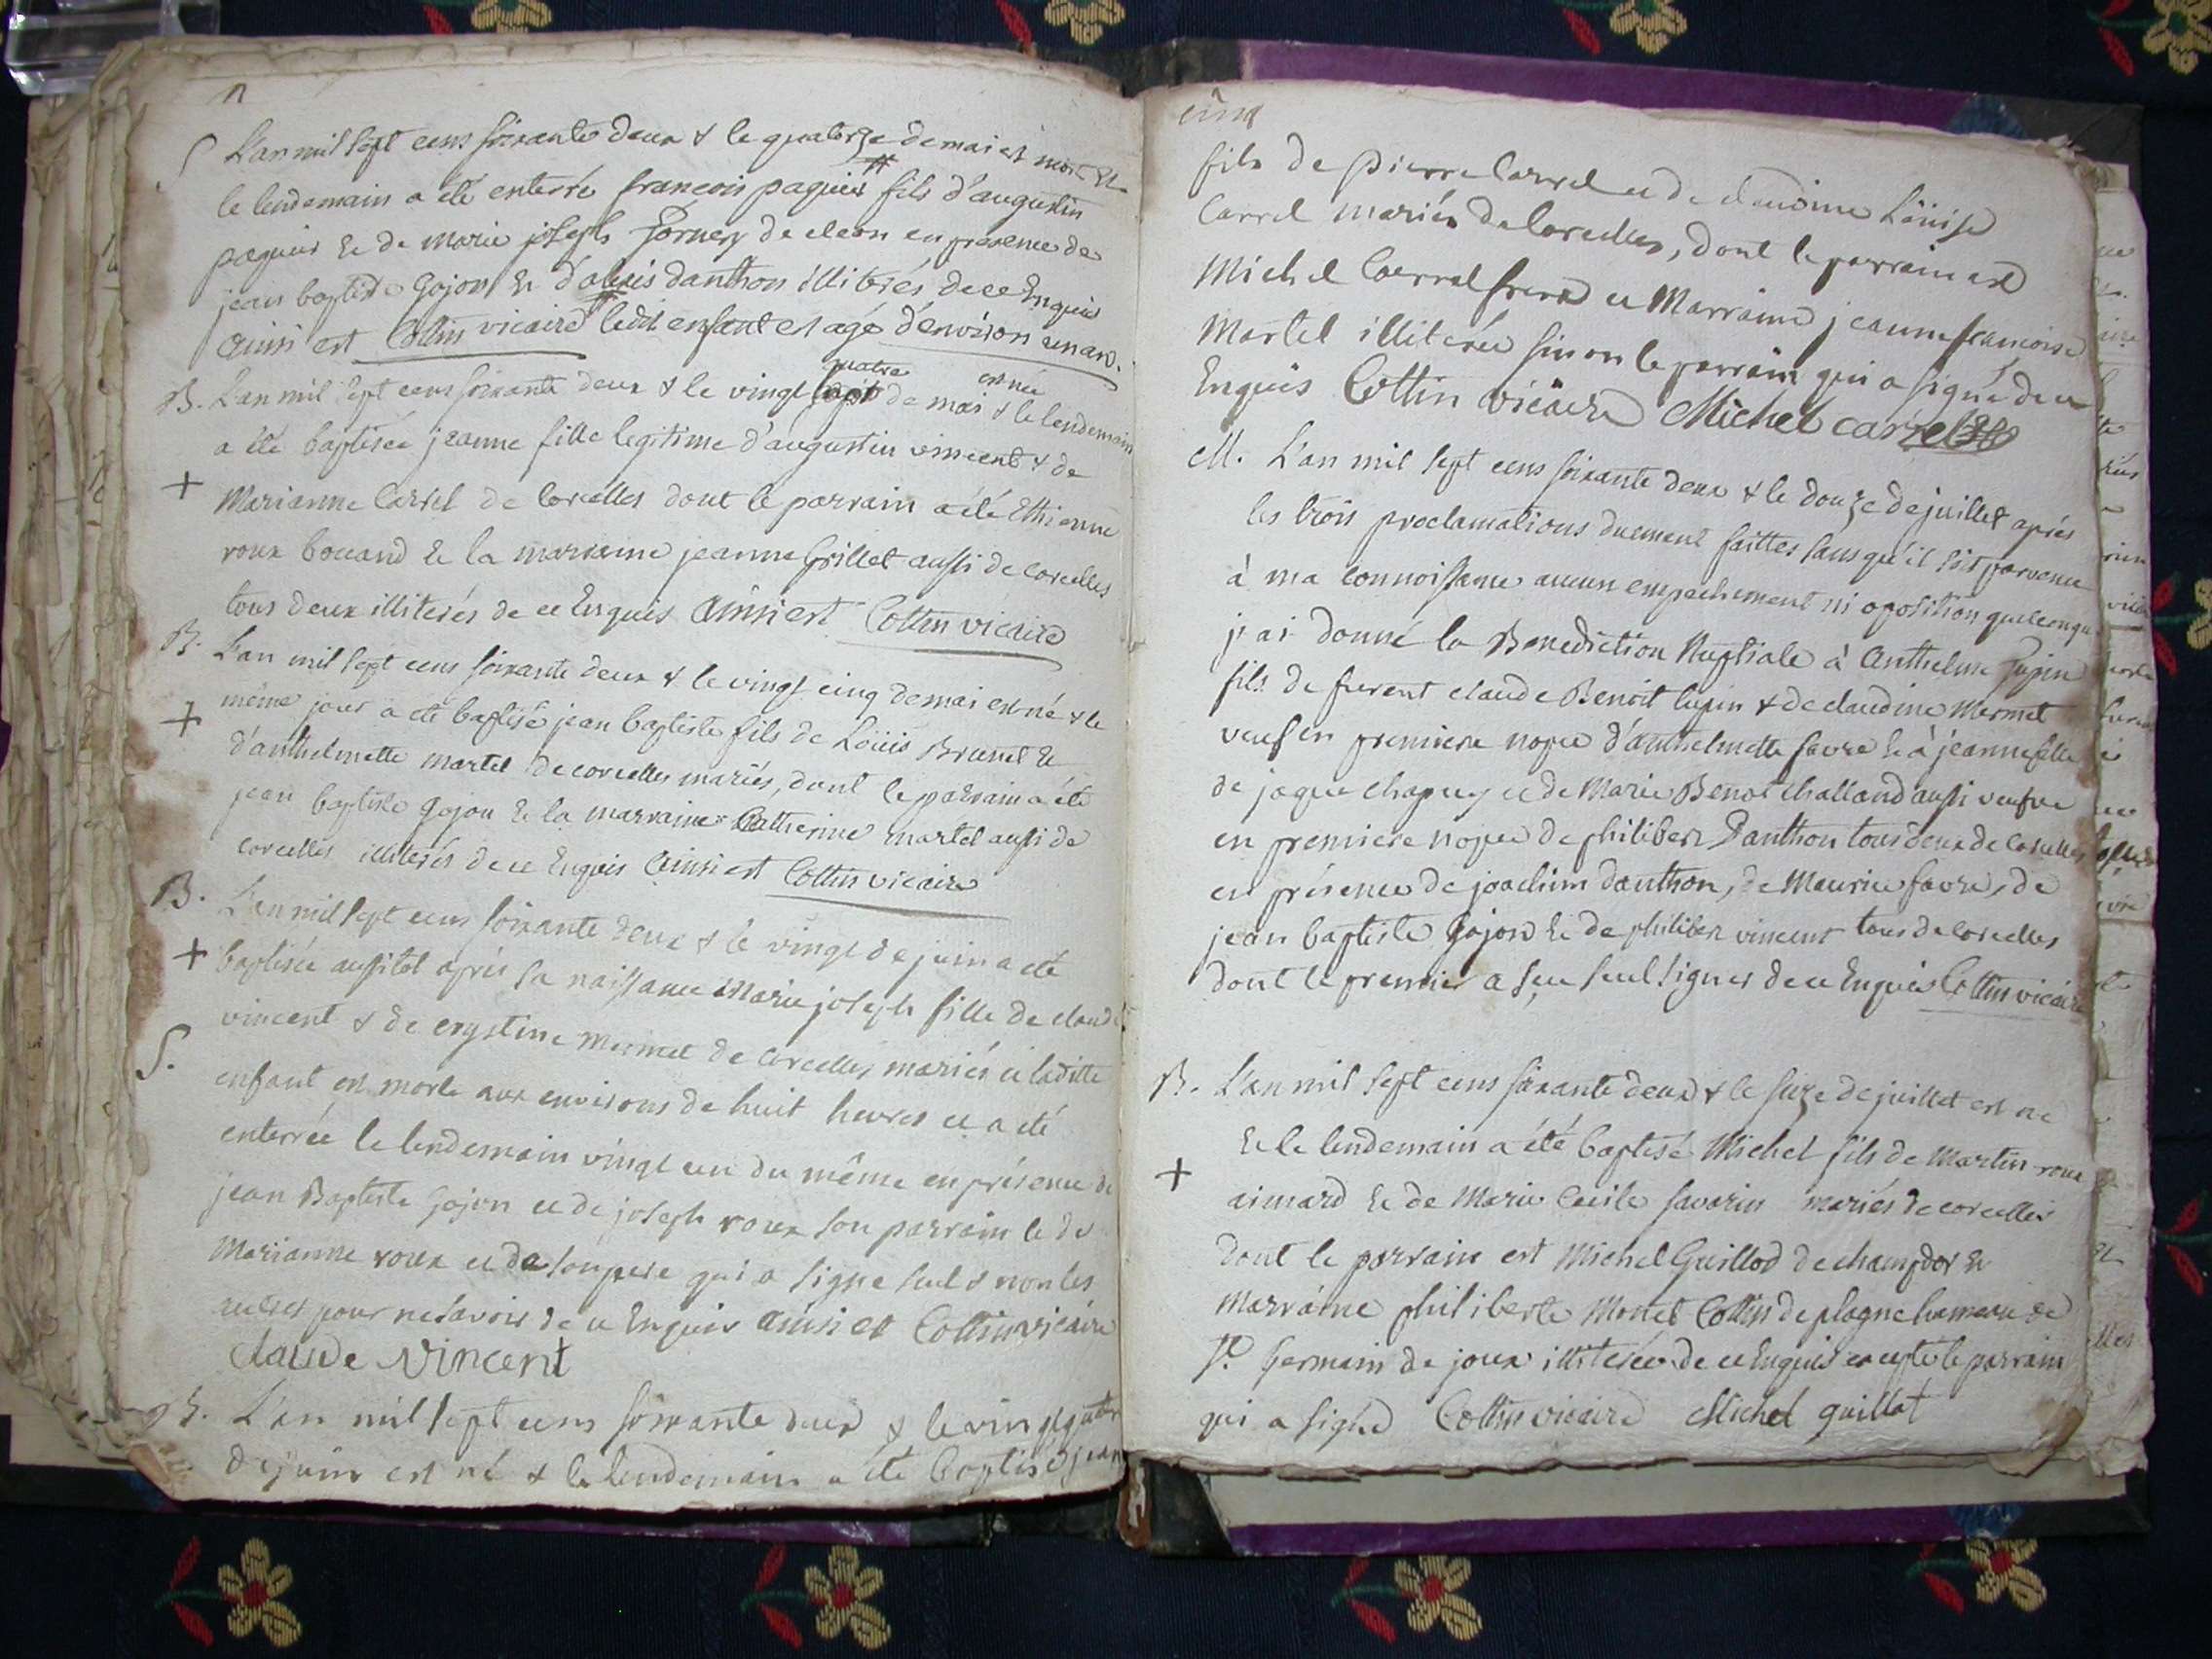 S L'an mil sept cens soixante deux & le quatorze de mai est mort &
le lendemain a été enterré francois paquier # fils d'augustin
paquier & de marie joseph de cleon en presence de
jean baptiste Gojon & d'alexis danthon illiterés de ce Enquis
ainsi est Collin vicaire # ledit enfant est agé d'environ un an.
quatre est née
B. L'an mil sept cens soixante deux & le vingt sept de mai & le lendemain
a été baptisée jeanne fille legitime d'augustin vincent & de
+ Marianne Carrel de Corcelles dont le parrain a été Ethienne
roux bouand & la marraine jeanne Grillet aussi de corcelles
tous deux illiterés de ce Enquis Ainsi est Collin vicaire
B. L'an mil sept cens soixante deux & le vingt cinq de mai est né & le
+ même jour a été baptisé jean baptiste fils de Loüis Brunet &
d'anthelmette martel de corcelles mariés, dont le parrain a été
jean baptiste Gojon & la marraine Catherine martel aussi de
corcelles illiterés de ce Enquis Ainsi est Collin vicaire
B. L'an mil sept cens soixante deux & le vingt de juin a été
+ baptisée aussitot après sa naissance Marie joseph fille de claude
vincent & de crystine mermet de corcelles mariés et laditte
S. enfant est morte aux environs de huit heures et a été
enterrée le lendemain vingt un du même en présence de
jean Baptiste Gojon et de joseph roux son parrain & de
Marianne roux et de son pere qui a signé seul & non les
autres pour ne savoir de ce Enquis ainsi est Collin vicaire
claude vincent
B. L'an mil sept cens soixante deux & le vingt quatre
de juin est né & le lendemain a été baptisé jean
cinq
fils de Pierre Carrel et de claudine Loüise
Carrel mariés de Corcelles, dont le parrain est
Michel Carrel frere et Marraine jeanne francoise
Martel illiterée sinon le parrain qui a signé de ce
Enquis Collin vicaire Michel carrel
M. L'an mil sept cens soixante deux & le douze de juillet après
les trois proclamations duement faittes sans qu'il soit parvenu
à ma connoissance aucun empechement ni oposition quelconque
j'ai donné la Benediction Nuptiale à Anthelme Pupin
fils de furent claude Benoit Pupin & de claudine Mermet
veuf en premiere nopce d'anthelmette favre & à jeanne fille
de jaque chapuy et de Marie Benoit challand aussi veufve
en premiere nopce de philibert Danthon tous deux de Corcelles
en présence de joachim danthon, de Maurice favre, de
jean baptiste Gojon & de philibert vincent tous de Corcelles
dont le premier a sçu seul signer de ce Enquis Collin vicaire
B. L'an mil sept cens soixante deux & le seize de juillet est né
& le lendemain a été baptisé Michel fils de Martin roux
+ aimard & de Marie Cecile savarin mariés de corcelles
dont le parrain est Michel Guillod de champdor &
marraine philiberte Monet Collin de plagne hameau de
St Germain de joux illiterée de ce Enquis excepté le parrain
qui a signé Collin vicaire Michel guillot